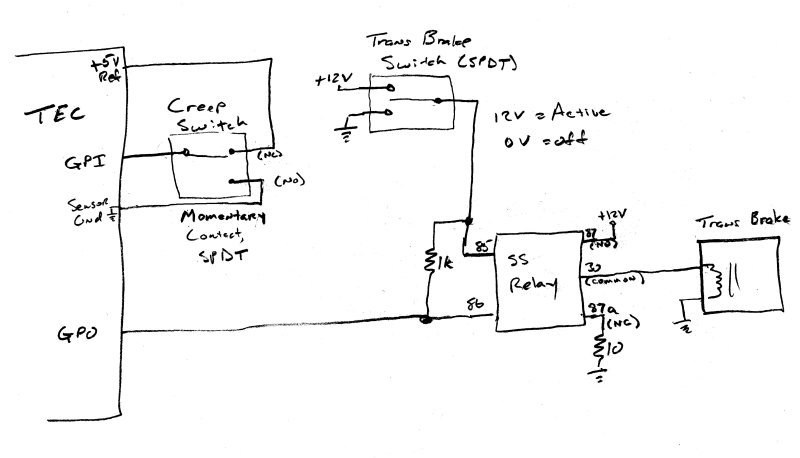 +5V
Ref
TEC
Creep
Switch
GPI
(NC)
(NO)
Sensor
Gnd
Momentary
Contact,
SPDT
GPO
Trans Brake
Switch (SPDT)
+12V
12V = Active
0V = off
1k
85
86
SS
Relay
87
(NO)
+12V
30
(common)
87a
(NC)
10
Trans Brake